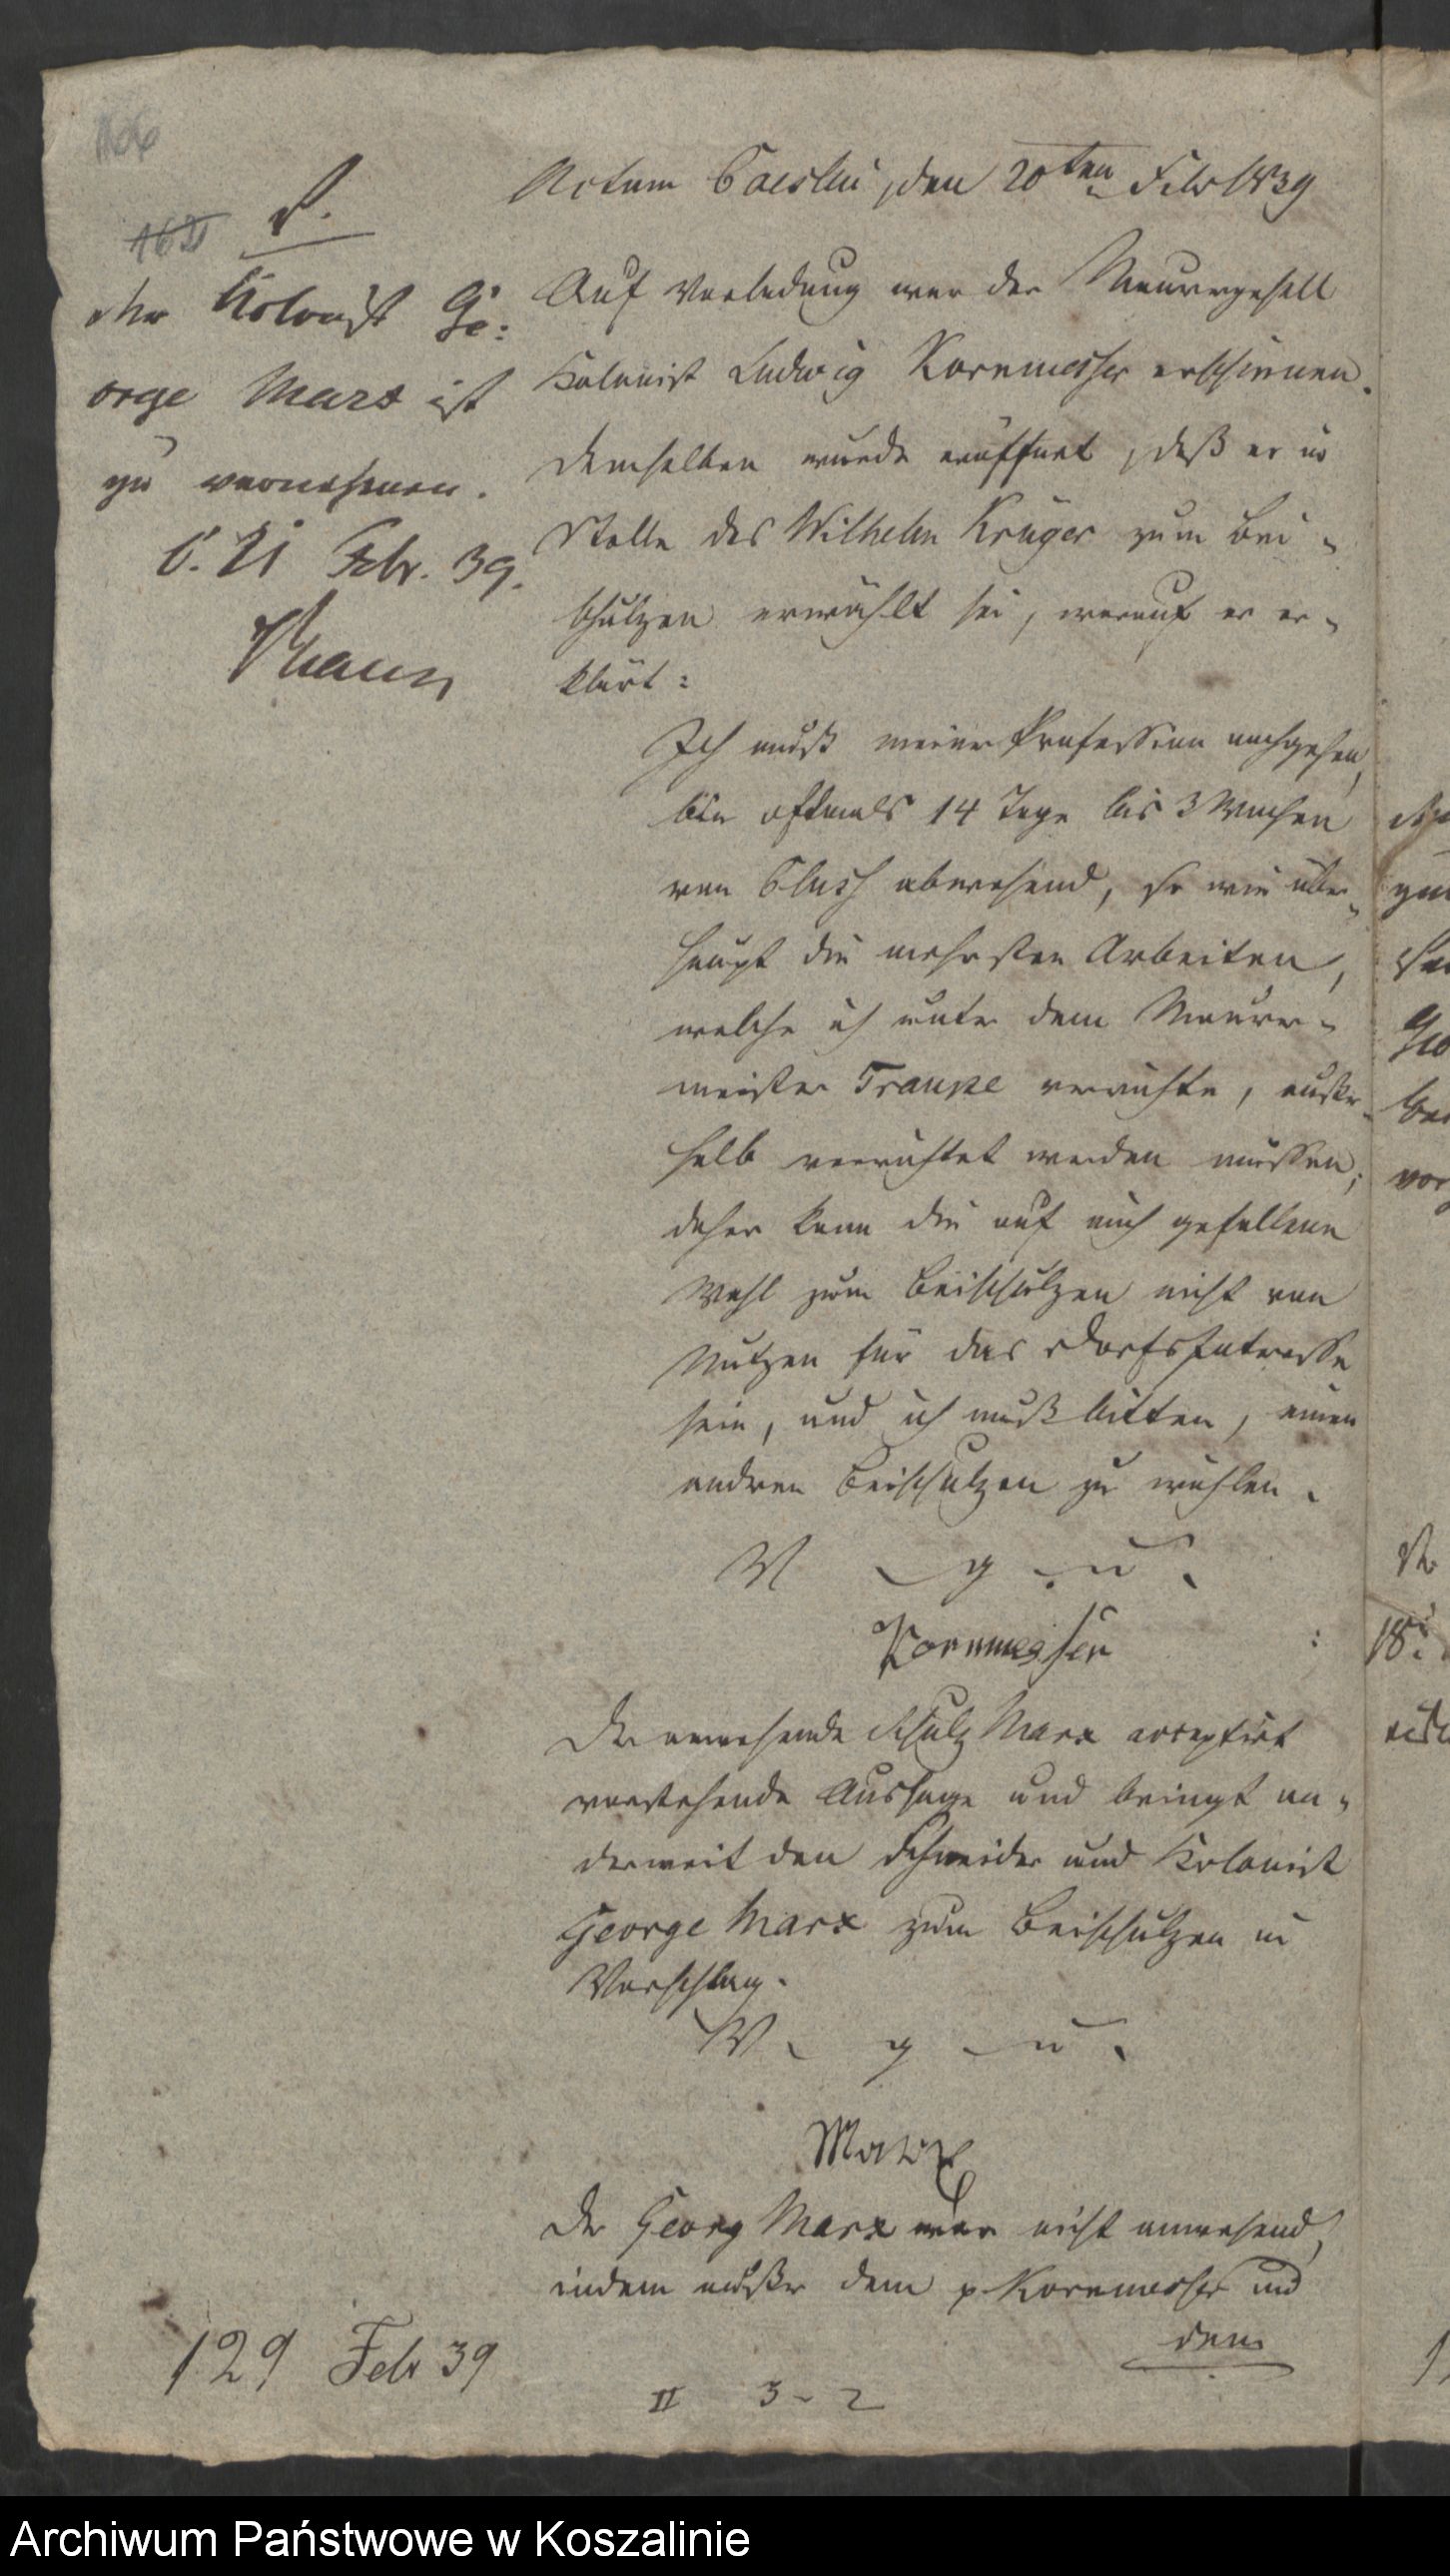 Actum Coeslin, den 20ten Febr 1839
V.
der Kolonist Ge:
orge Marx ist
zu vernehmen.
C. 21 Febr. 39.
Auf Vorladung war der Maurergesell
Kolonist Ludwig Kornmesser erschienen.
Demselben wurde eröffnet, daß er in
Stelle des Wilhelm Krüger zum Bei-
schulzen erwählt sei, worauf er er-
klärt:
Ich muß meiner Profession nachgehen,
bin oftmals 14 Tage bis 3 Wochen
von abwesend, so wie über-
haupt die mehrsten Arbeiten,
welche ich unter dem Maurer-
meister verrichte, außer-
halb verrichtet werden müssen;
daher kann die auf mich gefallene
Wahl zum Beischulzen nicht von
Nutzen für das Dorfs Intresse
sein, und ich muß bitten, einen
andren Beischulzen zu wählen.
V. g. u.
Kornmesser
Der anwesende Schulz Marx acceptirt
vorstehende Aussage und bringt an-
derweit den Schneider und Kolonist
George Marx zum Beischulzen in
Vorschlag.
V. g. u.
Marx
Der Georg Marx war nicht anwesend,
indem außer dem p Kornmesser und
dem
129 Feb 39
II 3-2
Archiwum Państwowe w Koszalinie